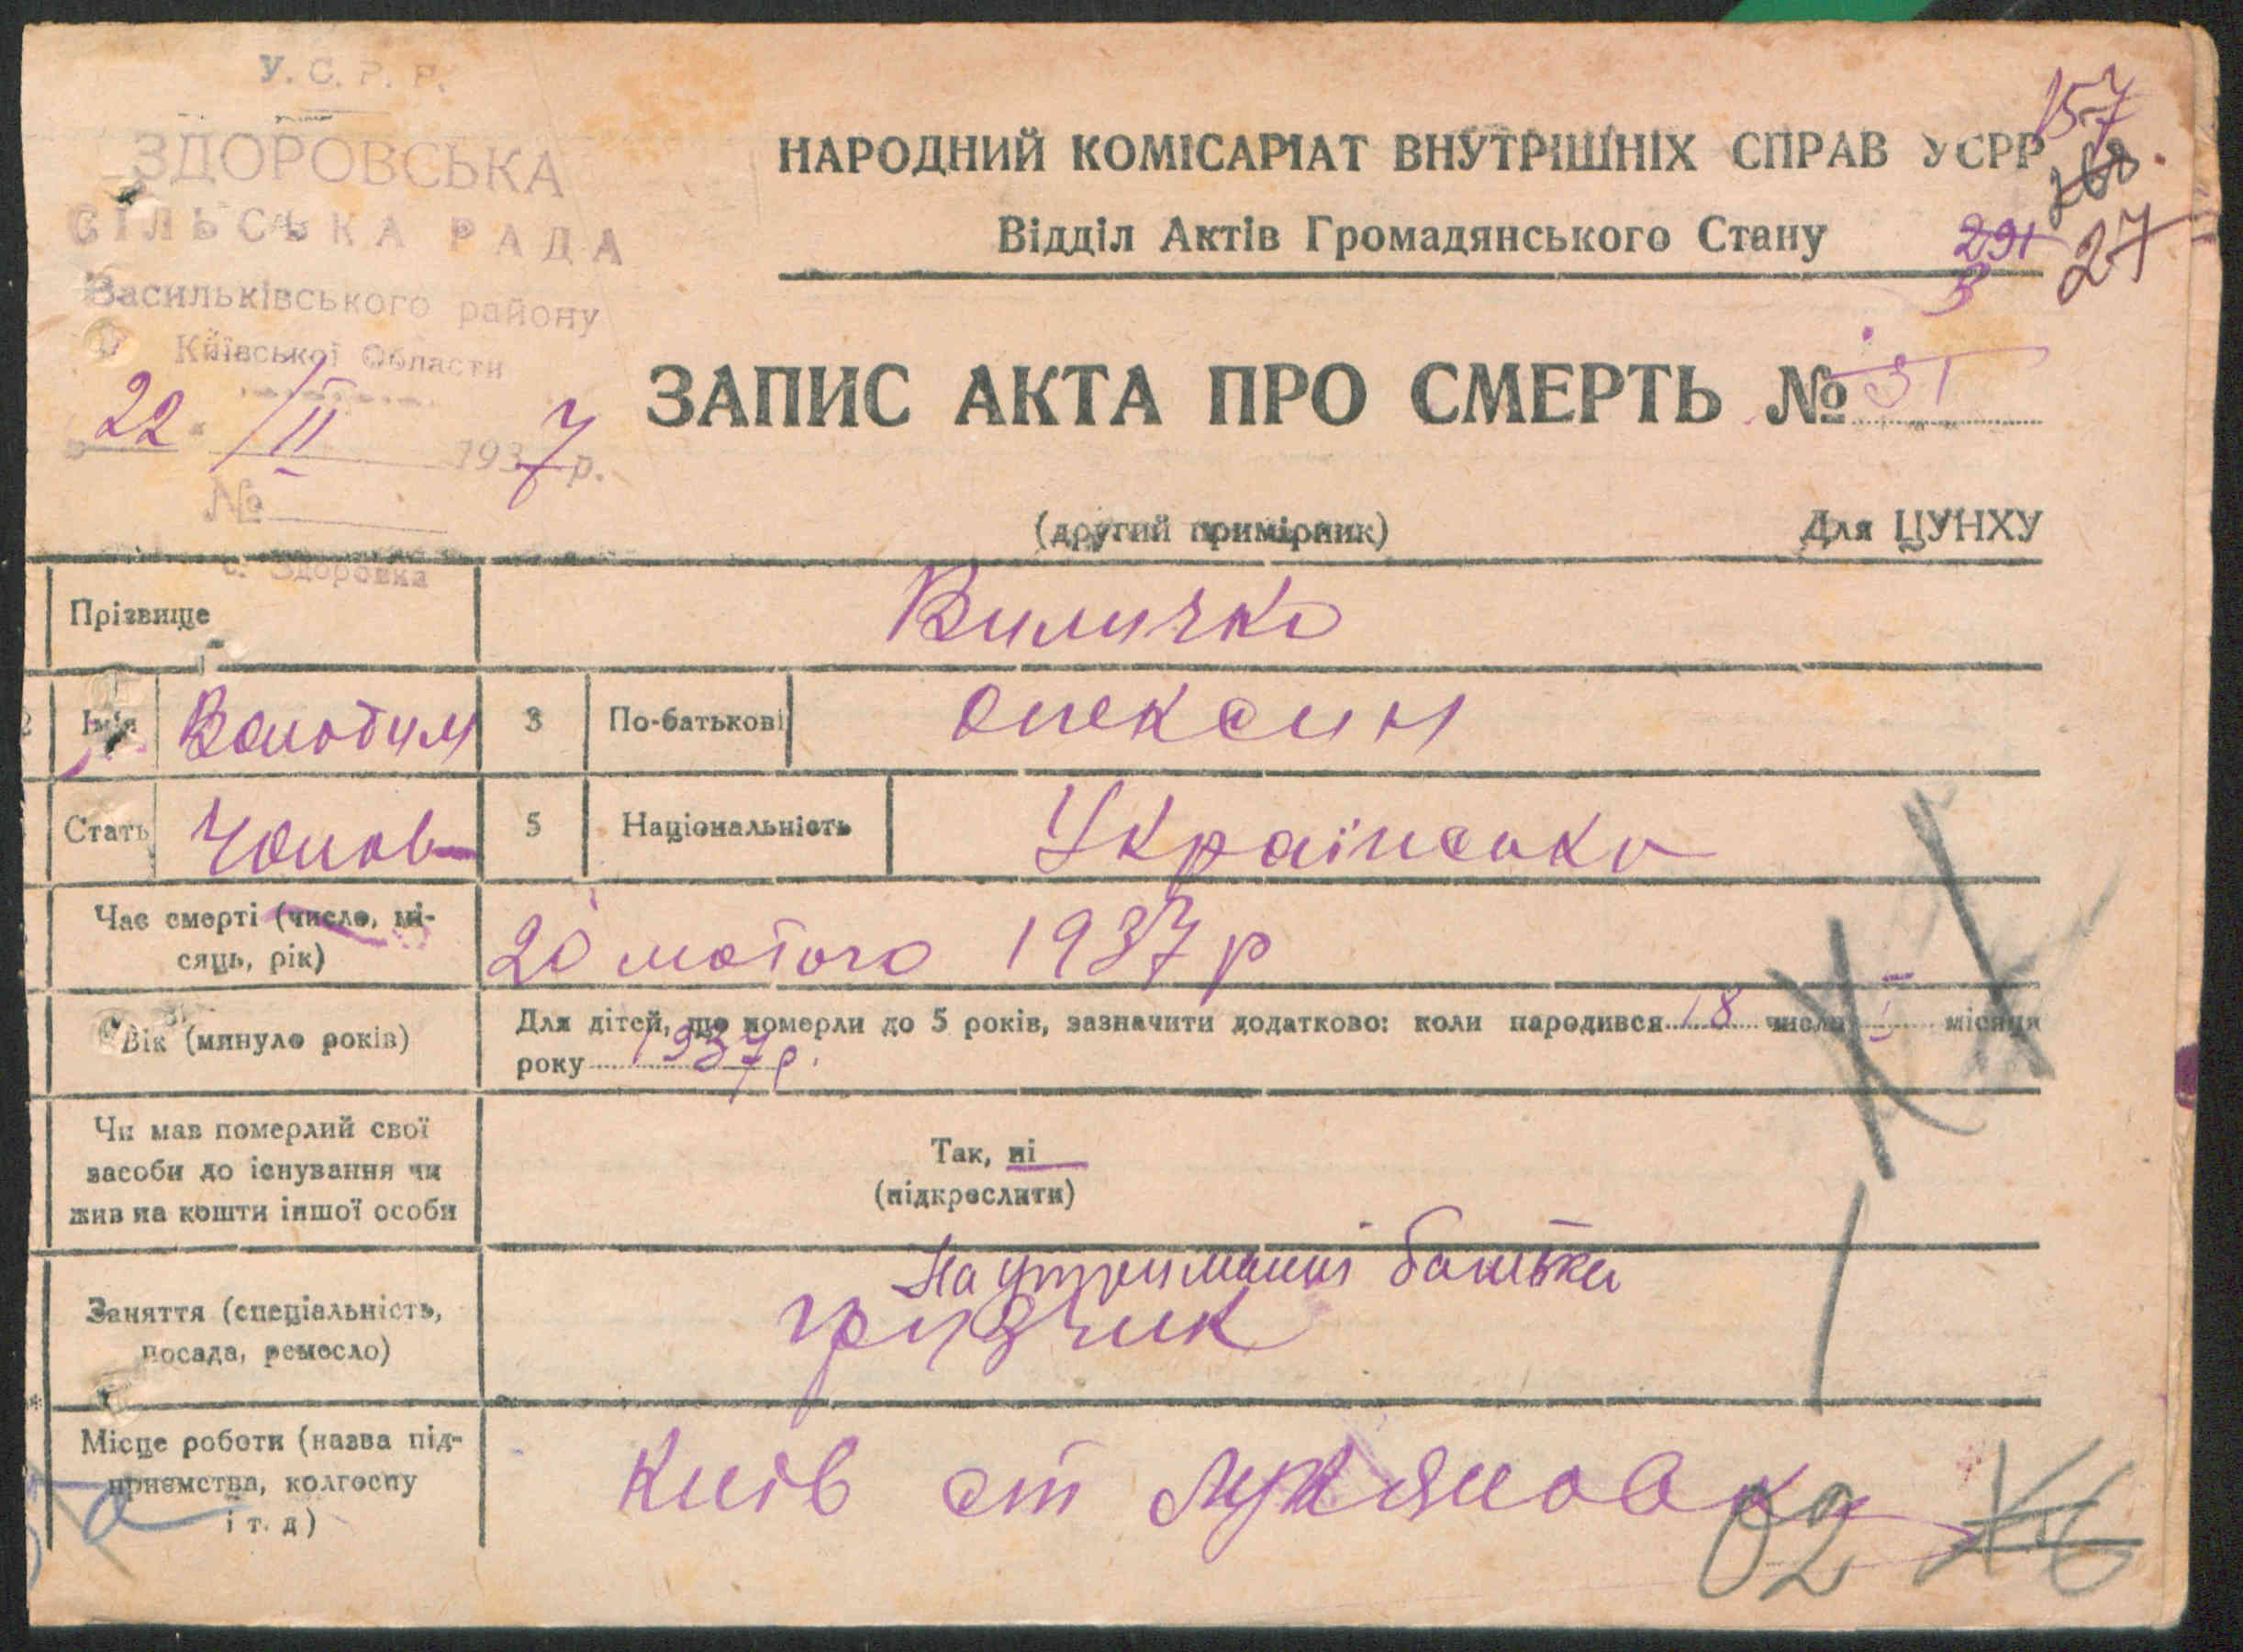 У. С. Р. Р.
ЗДОРОВСЬКА
СІЛЬСЬКА РАДА
Васильківського району
Київської Области
„22" / II 1937 р.
№
с. Здоровка
157
268
291
27
3
НАРОДНИЙ КОМІСАРІАТ ВНУТРІШНІХ СПРАВ УСРР
Відділ Актів Громадянського Стану
ЗАПИС АКТА ПРО СМЕРТЬ № 31
(другий примірник) Для ЦУНХУ
Прізвище Виличко
2 Ім'я Володим 3 По-батькові Олексин
Стать Чолов 5 Національність Українська
Час смерті (число, мі-
сяць, рік) 20 лютого 1937 р
Вік (минуло років) Для дітей, що померли до 5 років, зазначити додатково: коли народився 18 числа I місяця
року 1937 р.
Чи мав померлий свої
засоби до існування чи
жив на кошти іншої особи
Так, ні
(підкреслити)
На утриманні батька
Заняття (спеціальність,
посада, ремесло) грузчик
Місце роботи (назва під-
приємства, колгоспу
і т. д)
Київ ст Лукяновка
02